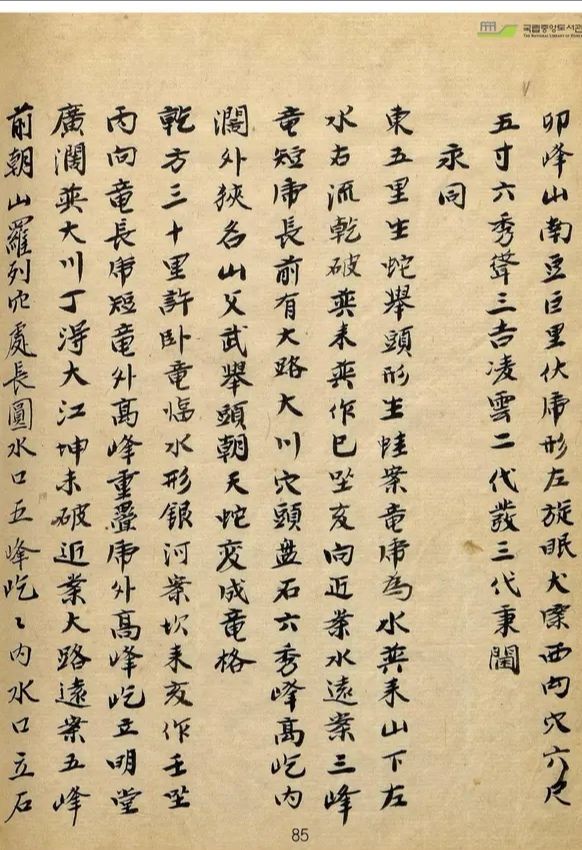 국립중앙도서관
THE NATIONAL LIBRARY OF KOREA
卯峰山南豆巨里伏虎形左旋眠犬案西內穴六尺
五寸六秀聳三吉凌雲二代發三代秉閫
永同
東五里生蛇擧頭形生蛙案竜虎為水巽来山下左
水右流乾破巽来巽作巳坐亥向近案水遠案三峰
竜短虎長前有大路大川穴頭盘石六秀峰高屹内
濶外狹名山父武擧頭朝天蛇变成竜格
乾方三十里許卧竜臨水形銀河案坎来亥作壬坐
丙向竜長虎短竜外高峰重疊虎外高峰屹立明堂
廣濶巽大川丁淂大江坤未破近案大路遠案五峰
前朝山羅列穴處長圓水口五峰屹〻内水口立石
85